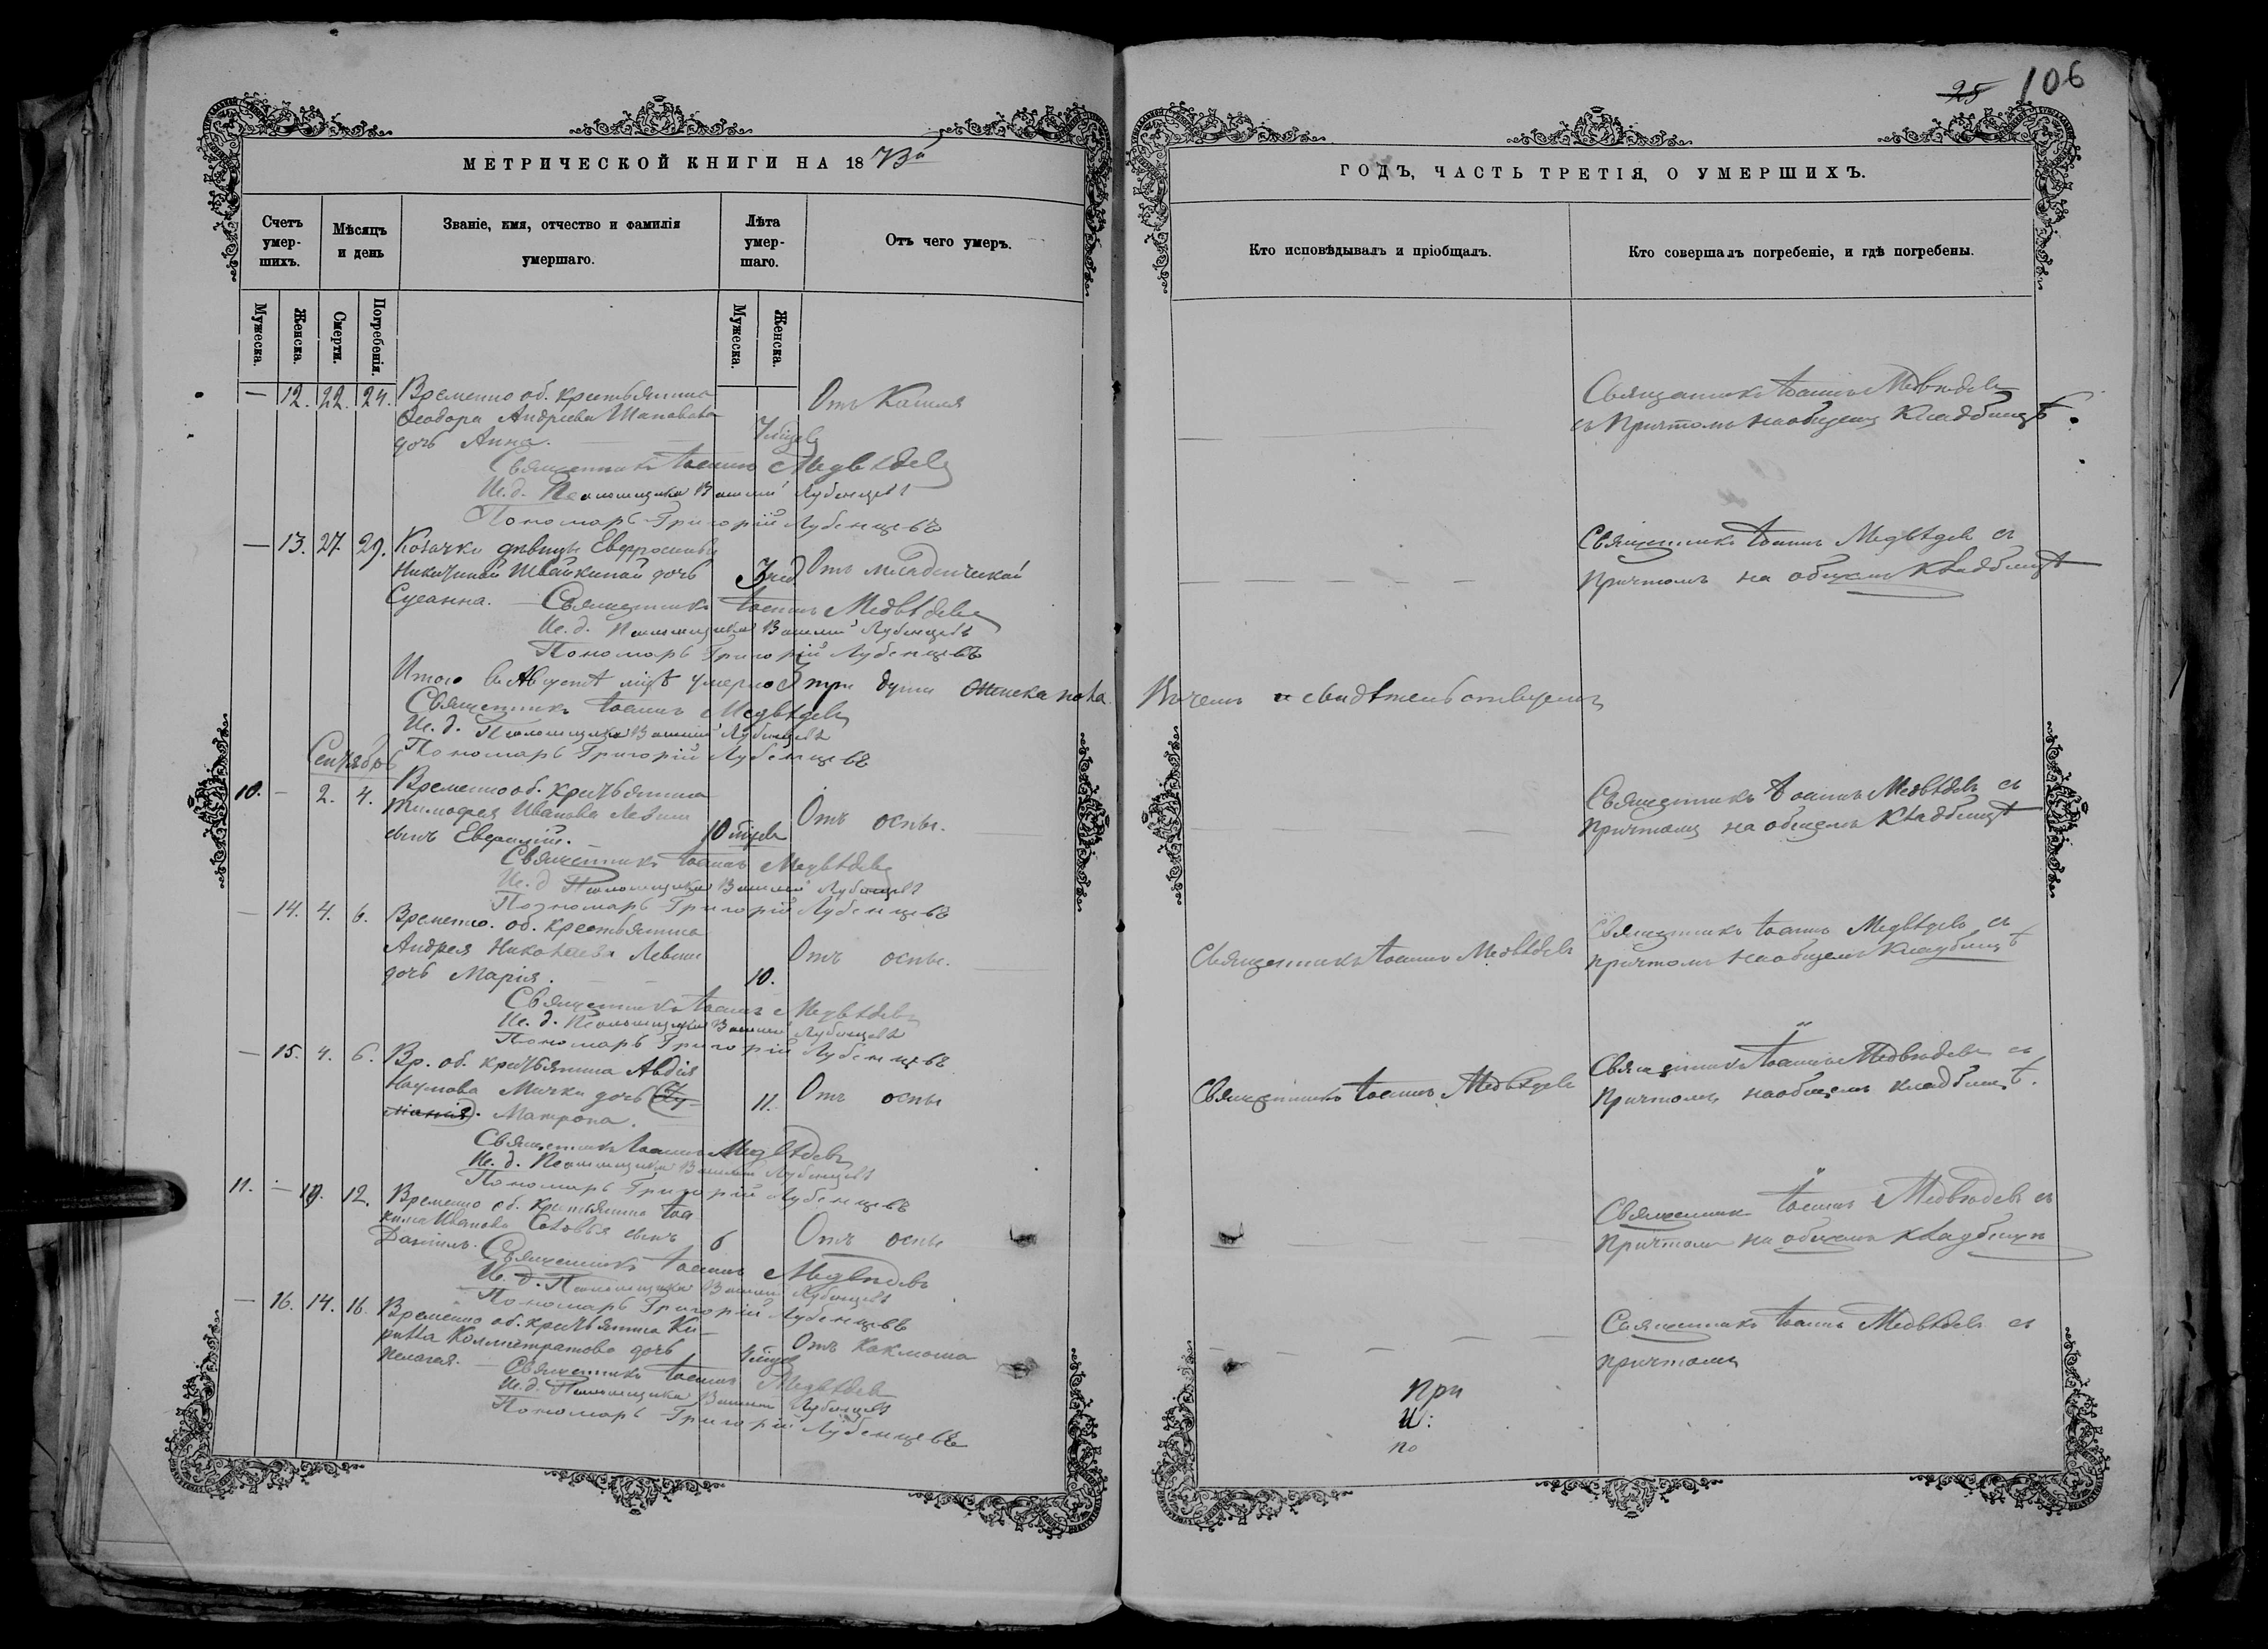 25 106
МЕТРИЧЕСКОЙ КНИГИ НА 1873й
ГОДЪ, ЧАСТЬ ТРЕТІЯ, О УМЕРШИХЪ.
Счетъ умер-шихъ.
Мѣсяцъ и день
Званіе, имя, отчество и фамилія умершаго.
Лѣта умер-шаго.
Отъ чего умеръ.
Кто исповѣдывалъ и пріобщалъ.
Кто совершалъ погребеніе, и гдѣ погребены.
Мужеска.
Женска.
Смерти.
Погребенія.
Мужеска.
Женска.
— 12. 22. 24. Временно об. крестьянина
Ѳеодора Андреева Шаповала
дочь Анна.
Отъ Кашля
Священникъ Іоаннъ Медвѣдевъ
съ Причтомъ на общемъ Кладбищѣ.
Священникъ Іоаннъ Медвѣдевъ
И. д. Псаломщика Василий Лубенцевъ
Пономарь Григорій Лубенцевъ
— 13. 27. 29. Козачки дѣвицы Евфросиніи
Никитиной Швайкиной дочь
Сусанна.
3 нед
Отъ младенческой
Священникъ Іоаннъ Медвѣдевъ съ
причтомъ на общемъ Кладбищѣ
Священникъ Іоаннъ Медвѣдевъ
И. д. Псаломщика Василий Лубенцевъ
Пономарь Григорій Лубенцевъ
Итого въ Августѣ мцѣ умерло три души женска пола
В чемъ и свидѣтельствуемъ
Священникъ Іоаннъ Медвѣдевъ
И. д. Псаломщика Василий Лубенцевъ
Пономарь Григорій Лубенцевъ
Сентябрь
10. — 2. 4. Временно об. крестьянина
Тимофея Иванова Левши
сынъ
10 мцевъ
Отъ оспы.
Священникъ Іоаннъ Медвѣдевъ съ
причтомъ на общемъ Кладбищѣ
Священникъ Іоаннъ Медвѣдевъ
И. д. Псаломщика Василий Лубенцевъ
Пономарь Григорій Лубенцевъ
— 14. 4. 6. Временно. об. крестьянина
Андрея Николаева Левши
дочь Марія.
10.
Отъ оспы.
Священникъ Іоаннъ Медвѣдевъ
Священникъ Іоаннъ Медвѣдевъ съ
причтомъ на общемъ Кладбищѣ
Священникъ Іоаннъ Медвѣдевъ
И. д. Псаломщика Василий Лубенцевъ
Пономарь Григорій Лубенцевъ
— 15. 4. 6. Вр. об. крестьянина Авдія
Наумова Мички дочь
Матрона.
11.
Отъ оспы
Священникъ Іоаннъ Медвѣдевъ
Священникъ Іоаннъ Медвѣдевъ съ
Причтомъ на общемъ кладбищѣ.
Священникъ Іоаннъ Медвѣдевъ
И. д. Псаломщика Василий Лубенцевъ
Пономарь Григорій Лубенцевъ
11. — 12. Временно об. крестьянина Іоа
кима Иванова Соловья сынъ
Даніилъ.
6
Отъ оспы
Священникъ Іоаннъ Медвѣдевъ съ
Причтомъ на общемъ кладбищѣ
Священникъ Іоаннъ Медвѣдевъ
И. д. Псаломщика Василий Лубенцевъ
Пономарь Григорій Лубенцевъ
— 16. 14. 16. Временно об. крестьянина Ки-
рилла дочь
Пелагея.
Священникъ Іоаннъ Медвѣдевъ съ
причтомъ
Священникъ Іоаннъ Медвѣдевъ
И. д. Псаломщика Василий Лубенцевъ
Пономарь Григорій Лубенцевъ
при
И:
по